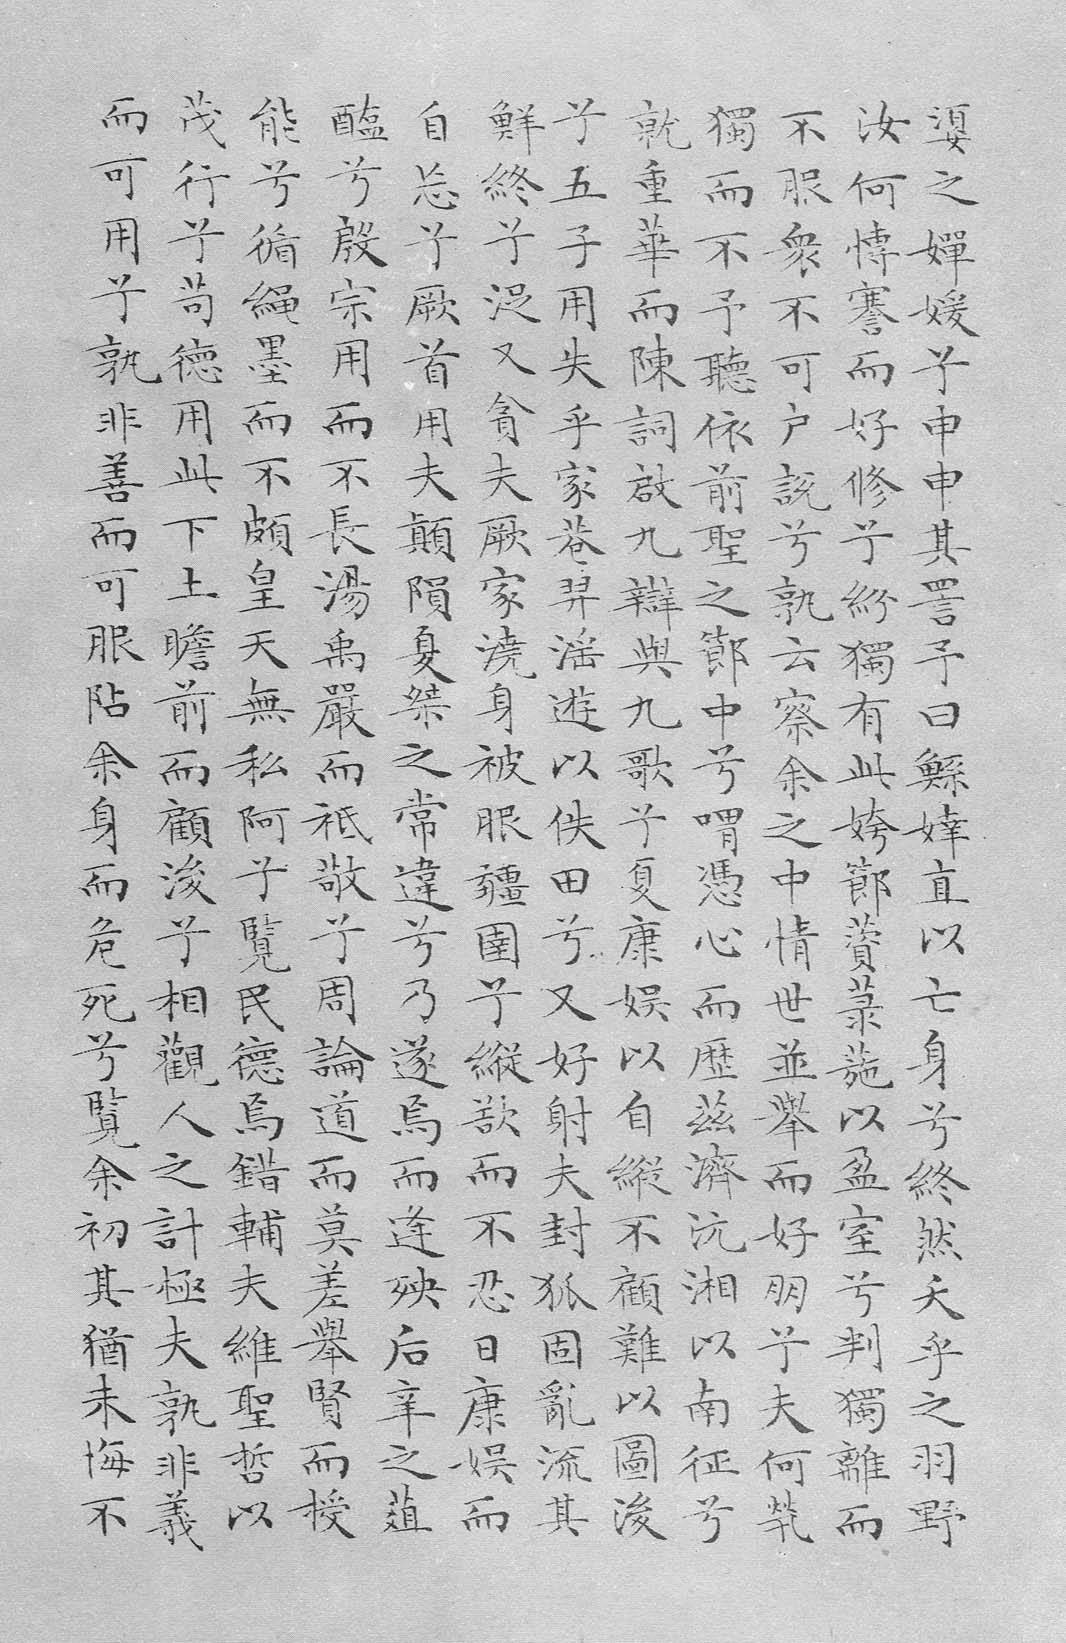 嬃之嬋媛兮申申其詈予曰鯀婞直以亡身兮終然夭乎之羽野
汝何博謇而好修兮紛獨有此姱節薋菉葹以盈室兮判獨離而
不服衆不可户説兮孰云察余之中情世並舉而好朋兮夫何煢
獨而不予聽依前聖之節中兮喟憑心而歷茲濟沅湘以南征兮
就重華而陳詞啟九辯與九歌兮夏康娛以自縱不顧難以圖後
兮五子用失乎家巷羿淫遊以佚田兮又好射夫封狐固亂流其
鮮終兮浞又貪夫厥家澆身被服彊圉兮縱欲而不忍日康娛而
自忘兮厥首用夫顛隕夏桀之常違兮乃遂焉而逢殃后辛之葅
醢兮殷宗用而不長湯禹嚴而祗敬兮周論道而莫差舉賢而授
能兮循繩墨而不頗皇天無私阿兮覽民德焉錯輔夫維聖哲以
茂行兮苟德用此下土瞻前而顧後兮相觀人之計極夫孰非義
而可用兮孰非善而可服阽余身而危死兮覽余初其猶未悔不